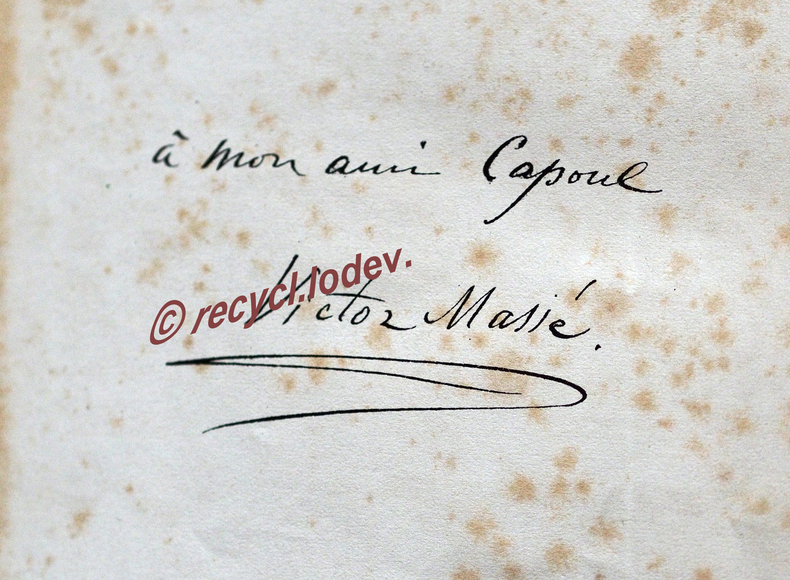 à mon ami Capoul
Victor Massé.
© recycl.lodev.